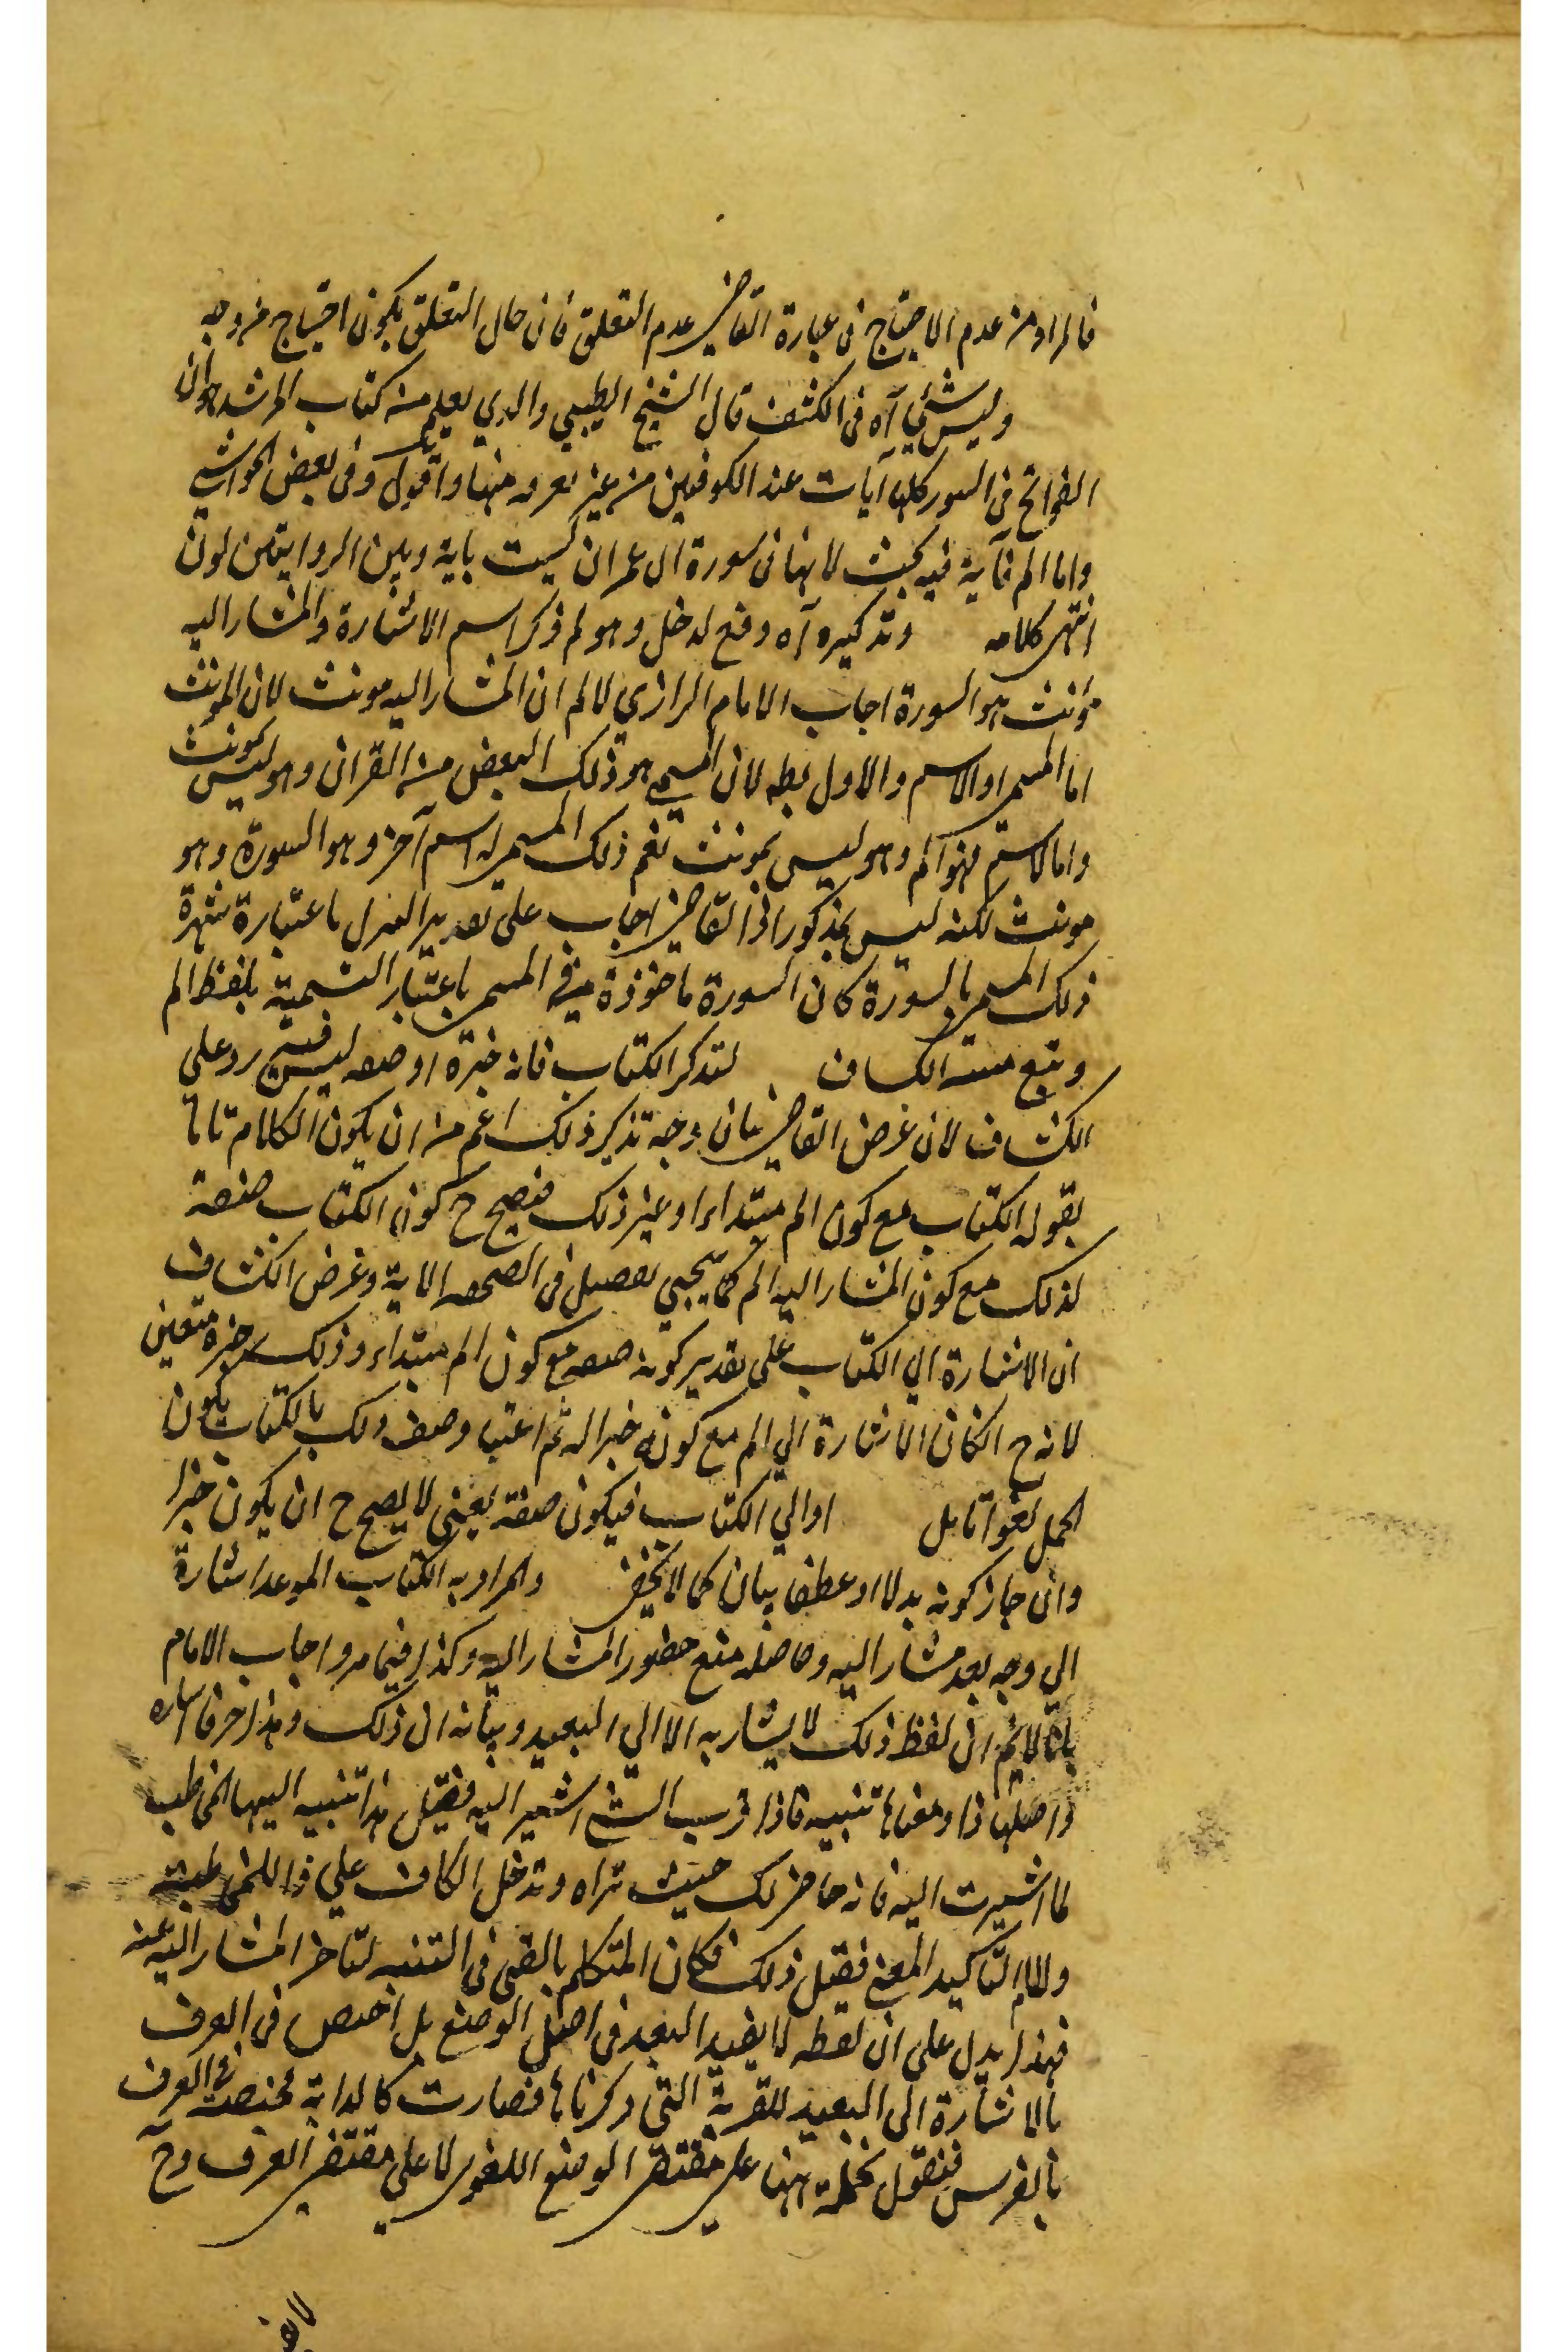 فالمراد من عدم الاحتياج في عبارة القاضي عدم التعلق فان حال التعلق يكون احتياج من وجه
وليس شيء آه في الكشف قال الشيخ الطيبي والذي يعلم من كتاب المرشد ان
الفواتح في السور كلها آيات عند الكوفيين من غير تفرقه بينها واقول وفي بعض الحواشي
واما الم فآية فيه بحث لانها في سورة ال عمران ليست باية وبين الروايتين لون
انتهى كلامه وتذكيره آه دفع لدخل وهو لم ذكر اسم الاشارة والمشار اليه
مؤنث هو السورة اجاب الامام الرازي لا لم ان المشار اليه مونث لان المونث
اما المسمى او الاسم والاول بطه لان المسمى هو ذلك البعض من القران وهو ليس بمونث
واما الاسم فهو الم وهو ليس بمونث نعم ذلك المسمى له اسم آخر وهو السورة وهو
مونث لكنه ليس بمذكور اذا القاضي اجاب على تقدير المنزل باعتبارة شهرة
ذلك المسمى بالسورة كان السورة ماخوذة في المسمى باعتبار التسمية بلفظ الم
وتبع الكساف لتذكر الكتاب فانه خبرة او صفه ليس فيه رد على
الكشاف لان غرض القاضي بيان وجه تذكير ذلك اعم من ان يكون الكلام تاما
بقوله الكتاب مع كون الم مبتداء او غير ذلك فيصح ح كون الكتاب صفة
لذلك مع كون المشار اليه الم كما يجيي تفصيل في الصحفه الاتية وغرض الكشاف
ان الاشارة الي الكتاب على تقدير كونه صفه مع كون الم مبتداء وذلك خبره متعين
لانه ح الكان الاشارة الي الم مع كونه خبرا له ثم اعتبا وصف ولك بالكتاب يكون
الحمل لغوا تامل اوالي الكتاب فيكون صفة يعني لا يصح ح ان يكون خبرا
وان جاز كونه بدلا او عطف بيان كما لا يخفى والمراد به الكتاب الموعد اشارة
الي وجه بعد مشار اليه وحاصله منع حضور المشار اليه وكذا فيما مر واجاب الامام
بانا لانم ان لفظ ذلك لا يشار به الا الي البعيد وبيانه ان ذلك وهذا حرفا اشاره
واصلها ذا ومعنا ها تنبيه فاذا قرب الشي اشير اليه فقيل هذا تنبيه اليها المخاطب
لما اشيرت اليه فانه حاضر لك حيث تراه وتدخل الكاف علي ذا للمخاطبة
واللام لتاكيد المعنى فقيل ذلك فكان المتكلم بالغ في التنبيه لتاخر المشار اليه عنه
فهذا يدل على ان لفظه لا يفيد البعد في اصل الوضع بل اختص في العرف
بالاشارة الى البعيد للقرينة التي ذكرنا ها فصارت كالدابة مختصة في العرف
بالفرس فنقول نحمله ههنا على مقتضى الوضع اللغوي لا على مقتضى العرف وح